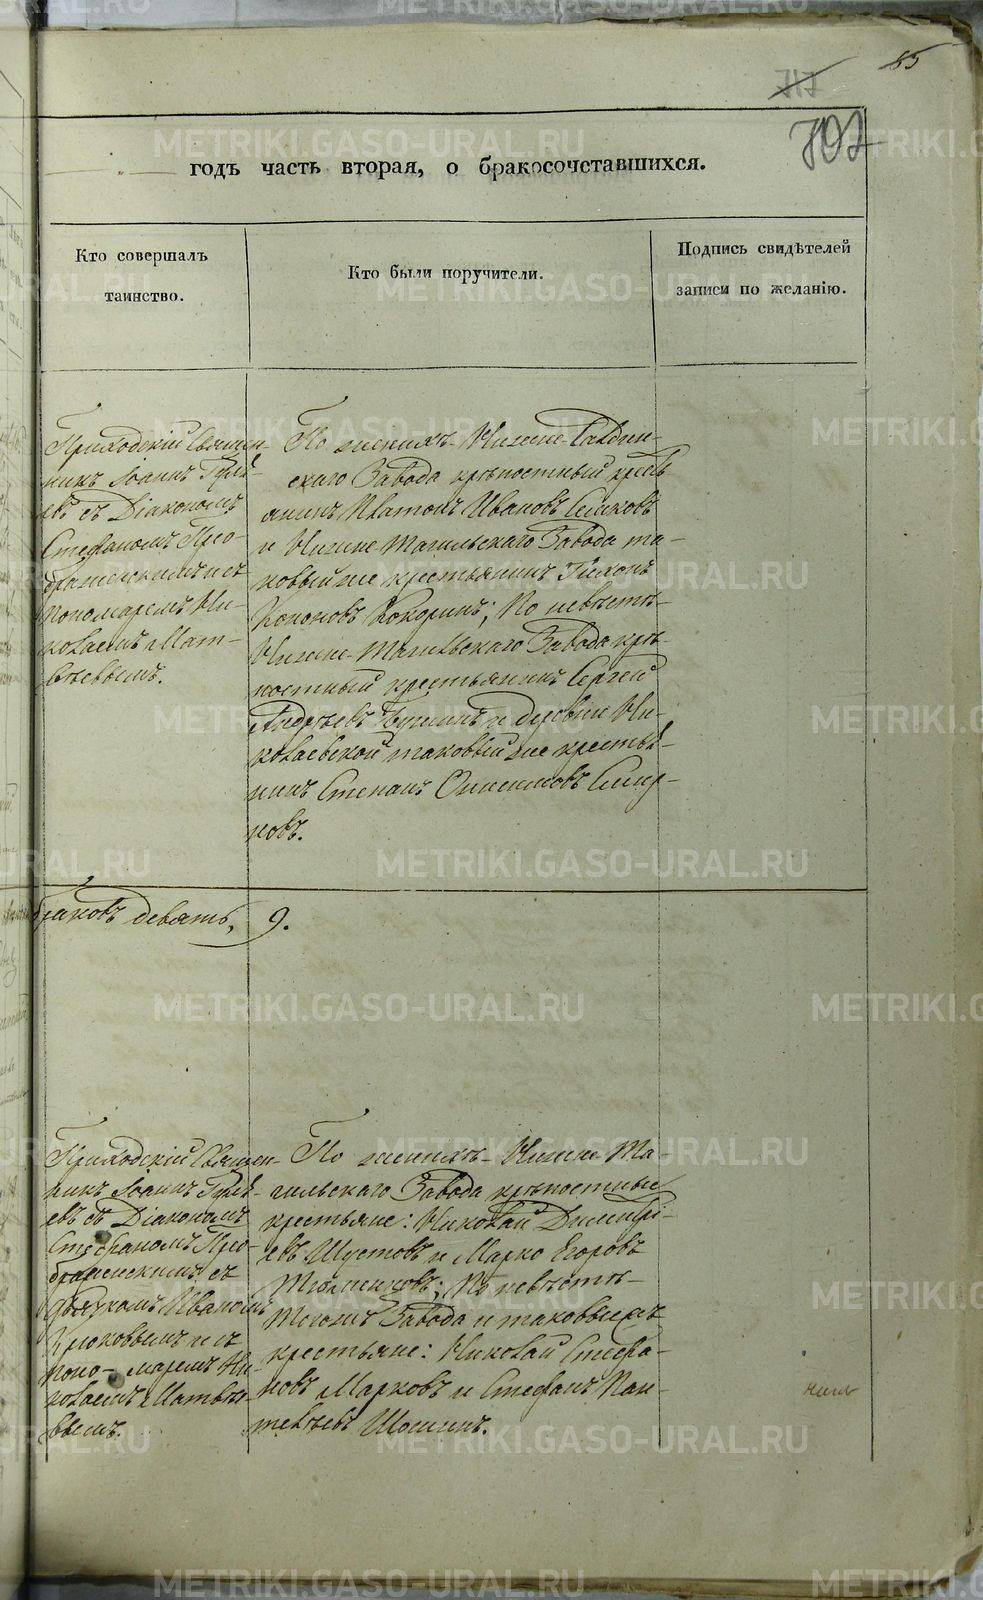 85
717
702
годъ часть вторая, о бракосочетавшихся.
Кто совершалъ
таинство.
Кто были поручители.
Подпись свидѣтелей
записи по желанію.
Приходскій Священ-
никъ Іоаннъ Гурь-
евъ съ Діакономъ
Стефаномъ Прео-
браженскимъ и съ
пономаремъ Ни-
колаемъ Мат-
вѣевымъ.
По женихѣ Нижне-Салдин-
скаго Завода крѣпостный кресть
янинъ Платонъ Ивановъ
и Нижне-Тагильскаго Завода та-
ковый же крестьянинъ Тихонъ
Кононовъ Кокоринъ; По невѣстѣ
Нижне-Тагильскаго Завода крѣ
постный крестьянинъ Сергей
Андреевъ и деревни Ни-
колаевской таковый же крестья-
нинъ Степанъ Онисимовъ Смир-
новъ.
браковъ девять, 9.
Приходскій Священ-
никъ Іоаннъ Гурь-
евъ съ Діакономъ
Стефаномъ Прео-
браженскимъ съ
дьячкомъ Иваномъ
Крюковымъ и съ
поно- маремъ Ни-
колаемъ Матвѣе-
вымъ.
По женихѣ Нижне-Та-
гильскаго Завода крѣпостные
крестьяне: Николай Димитрі-
евъ Шустовъ и Марко Егоровъ
; По невѣстѣ
тогожъ Завода и таковыежъ
крестьяне: Николай Стефа-
новъ Марковъ и Стефанъ Пан-
телѣевъ Шошинъ.
METRIKI.GASO-URAL.RU